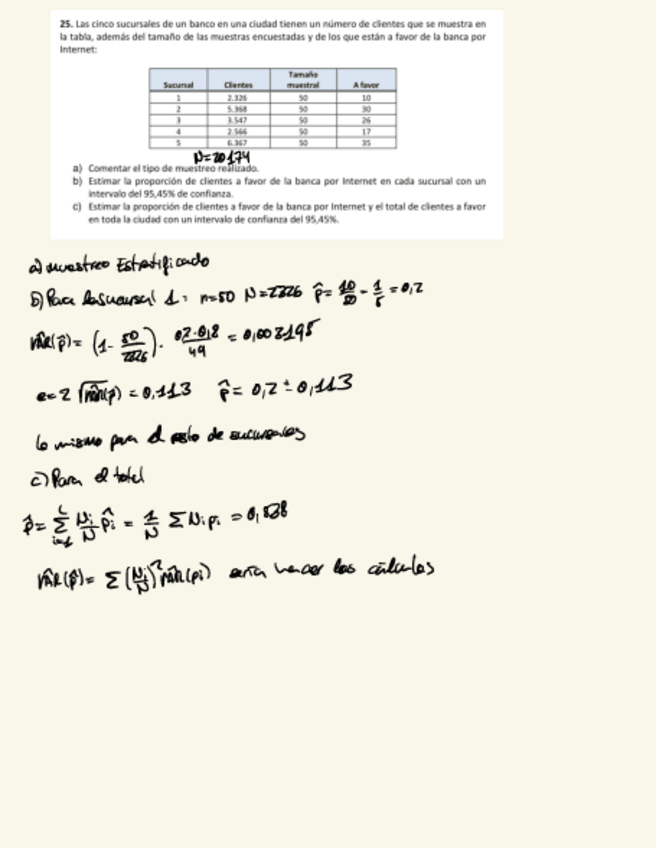 25. Las cinco sucursales de un banco en una ciudad tienen un número de clientes que se muestra en
la tabla, además del tamaño de las muestras encuestadas y de los que están a favor de la banca por
Internet:
Sucursal Clientes Tamaño muestral A favor
1 2.326 50 10
2 5.368 50 30
3 3.547 50 26
4 2.566 50 17
5 6.367 50 35
N=20174
a) Comentar el tipo de muestreo realizado.
b) Estimar la proporción de clientes a favor de la banca por Internet en cada sucursal con un
intervalo del 95,45% de confianza.
c) Estimar la proporción de clientes a favor de la banca por Internet y el total de clientes a favor
en toda la ciudad con un intervalo de confianza del 95,45%.
a) muestreo Estratificado
b) Para la sucursal 1: n=50 N=2326 p̂= 10/50 = 1/5 = 0,2
var(p̂)= (1- 50/2326) · 0,2·0,8/49 = 0,003195
e=2 √var(p̂) = 0,113 p̂= 0,2 ± 0,113
lo mismo para el resto de sucursales
c) Para el total
p̂= Σ Ni/N p̂i = 1/N Σ Ni pi = 0,538
var(p̂)= Σ (Ni/N)² var(pi) hacer los cálculos